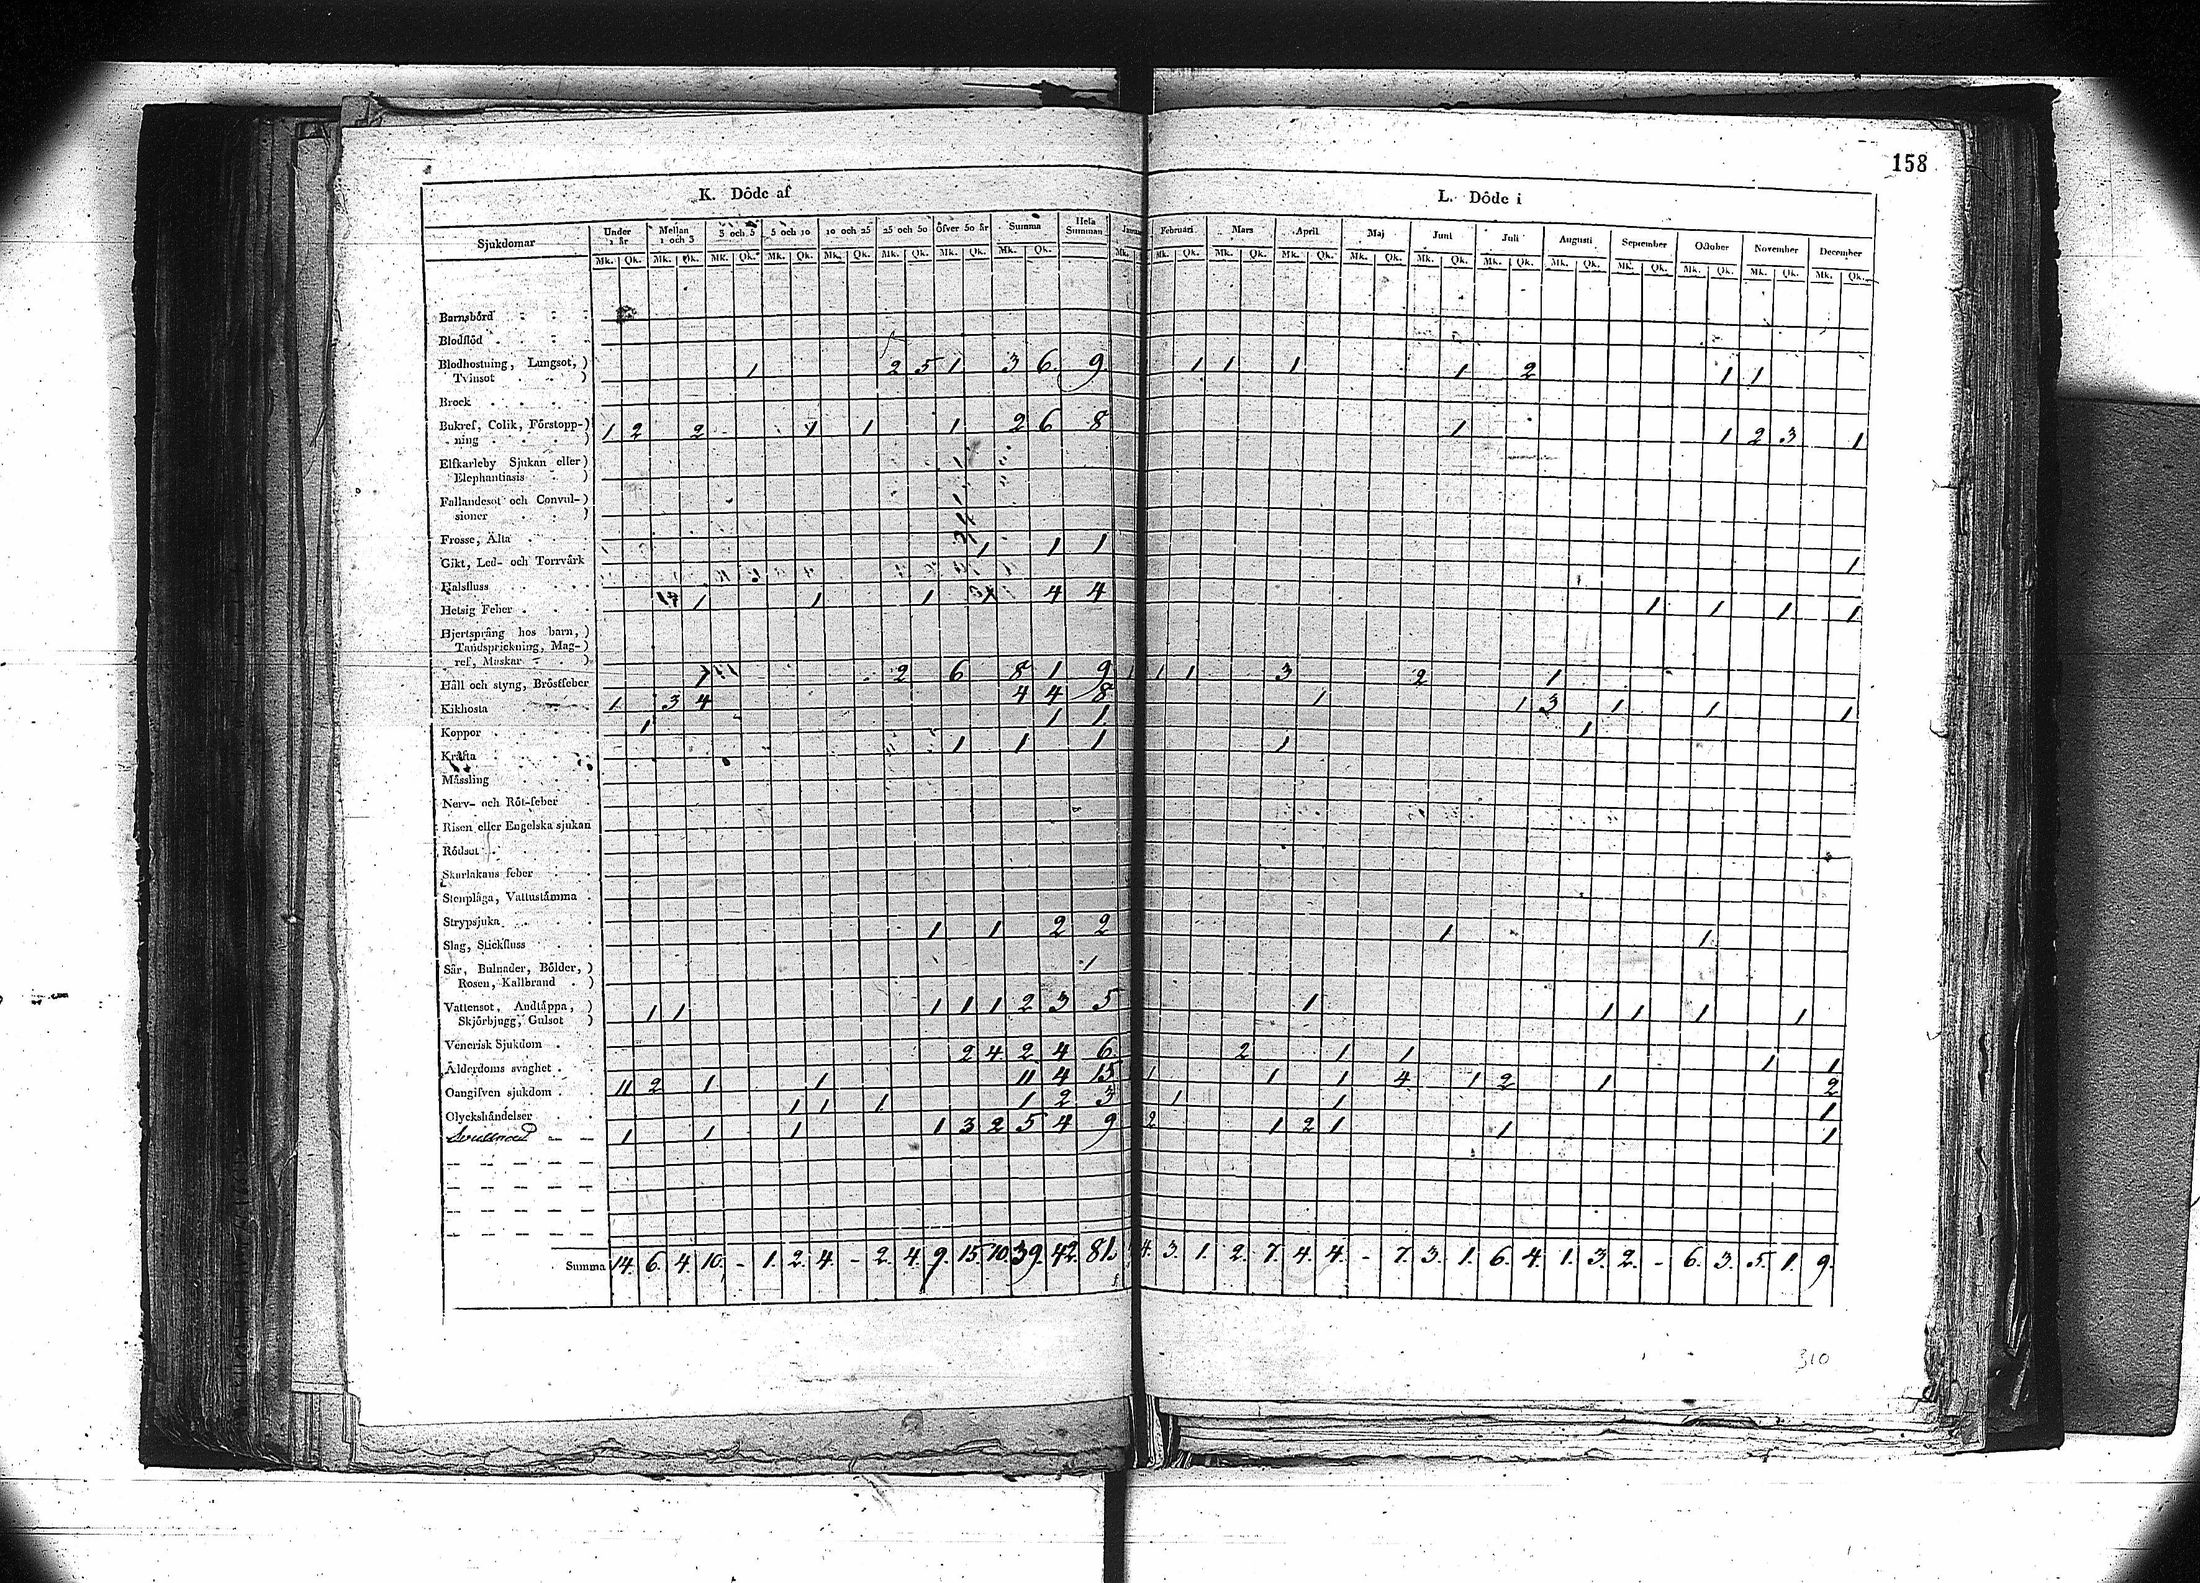 158
K. Döde af
L. Döde i
Sjukdomar Under 1 år Mellan 1 och 3 3 och 5 5 och 10 10 och 25 25 och 50 öfver 50 år Summa Hela Summan Februari Mars April Maj Juni Juli Augusti September October November December
Mk. Qk. Mk. Qk. Mk. Qk. Mk. Qk. Mk. Qk. Mk. Qk. Mk. Qk. Mk. Qk. Mk. Mk. Qk. Mk. Qk. Mk. Qk. Mk. Qk. Mk. Qk. Mk. Qk. Mk. Qk. Mk. Qk. Mk. Qk. Mk. Qk. Mk. Qk.
Barnsbörd
Blodflöd
Blodhostning, Lungsot, ) 1 2 5 1 3 6 9 1 1 1 1 2 1 1
Tvinsot )
Brock
Bukref, Colik, Förstopp-) 1 2 2 1 1 1 2 6 8 1 1 2 3 1
ning )
Elfkarleby Sjukan eller)
Elephantiasis )
Fallandesot och Convul-)
sioner )
Frosse, Älta 1 1 1
Gikt, Led- och Torrvärk 1
Halsfluss
Hetsig Feber 1 1 1 4 4 1 1 1 1
Hjertsprång hos barn, )
Tandsprickning, Mag- )
ref, Maskar )
Håll och styng, Bröstfeber 2 6 8 1 9 1 1 1 3 2 1
Kikhosta 1 3 4 4 4 8 1 1 3 1 1 1
Koppor 1 1 1 1
Kräfta 1 1 1 1
Mässling
Nerv- och Röt-feber
Risen eller Engelska sjukan
Rödsot
Skarlakans feber
Stenplåga, Vattustämma
Strypsjuka
Slag, Stickfluss 1 1 2 2 1 1
Sår, Bulnader, Bölder, ) 1
Rosen, Kallbrand )
Vattensot, Andtäppa, ) 1 1 1 1 1 2 3 5 1 1 1 1 1
Skjörbjugg, Gulsot )
Venerisk Sjukdom
Ålderdoms svaghet 2 4 2 4 6 2 1 1 1 1
Oangifven sjukdom 11 2 1 1 11 4 15 1 1 1 4 1 2 1 2
Olyckshändelser 1 1 1 1 2 3 1 1 1
1 1 1 1 3 2 5 4 9 2 1 2 1 1 1
Summa 14. 6. 4. 10. - 1. 2. 4. - 2. 4. 9. 15. 10. 39. 42. 81. 4. 3. 1. 2. 7. 4. 4. - 7. 3. 1. 6. 4. 1. 3. 2. - 6. 3. 5. 1. 9.
310